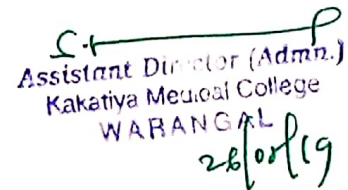 Assistant Director (Admn.)
Kakatiya Medical College
WARANGAL